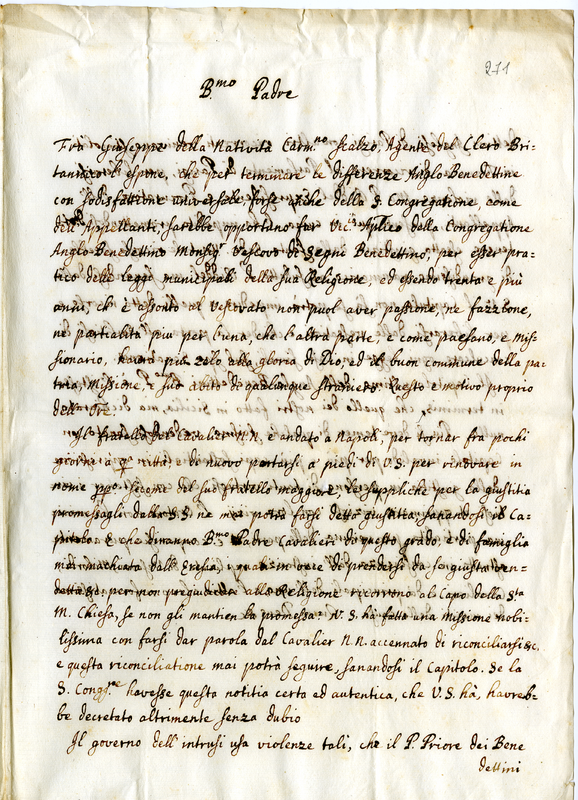 271
B.mo Padre
Fra Giuseppe della Natività Carm.no Scalzo, Agente del Clero Bri-
tannico l'espone, che per terminare le differenze Anglo-Benedettine
con sodisfattione universale forse anche della S. Congregatione, come
dell'Appellanti, sarebbe opportuno far Vic.o Aplico della Congregatione
Anglo-Benedettino Monsig.r Vescovo di Segni Benedettino, per esser pra-
tico delle leggi municipali della sua Religione, ed essendo trenta e più
anni, ch'è assonto al Vescovato non puol aver passione, ne fazzione,
ne partialità più per l'una, che l'altra parte, e come paesano, e mis-
sionario, havrà più zelo alla gloria di Dio, ed il buon commune della pa-
tria, Missione, e suo abito di qualunque straniero. Questo è motivo proprio
dell'
Il fratello del Cavalier N.N. è andato a Napoli, per tornar fra pochi
giorni a q.a città e di nuovo portarsi a' piedi di V.S. per rinovare in
nome pp.o secome del suo fratello maggiore, le suppliche per la giustitia
promessagli dalla S.S. ne mai potrà farsi detta giustitia, sanandosi il Ca-
pitolo. E che diranno B.mo Padre Cavalieri di questo grado, e di famiglia
mai machiata dall'Eresia, i quali in vece di prendersi da se giusta ven-
detta &c. per non pregiudicar alla Religione ricorrono al Capo della S.ta
M. Chiesa, se non gli mantien la promessa? V.S. hà fatta una missione nobi-
lissima con farsi dar parola del Cavalier N.N. accennato di riconciliarsi &c.
e questa riconciliatione mai potrà seguire, sanandosi il Capitolo. Se la
S. Congg.ne havesse questa notitia certa ed autentica, che V.S. hà, havreb-
be decretato altrimente senza dubio
Il governo dell'intrusi usa violenze tali, che il P. Priore dei Bene
dettini